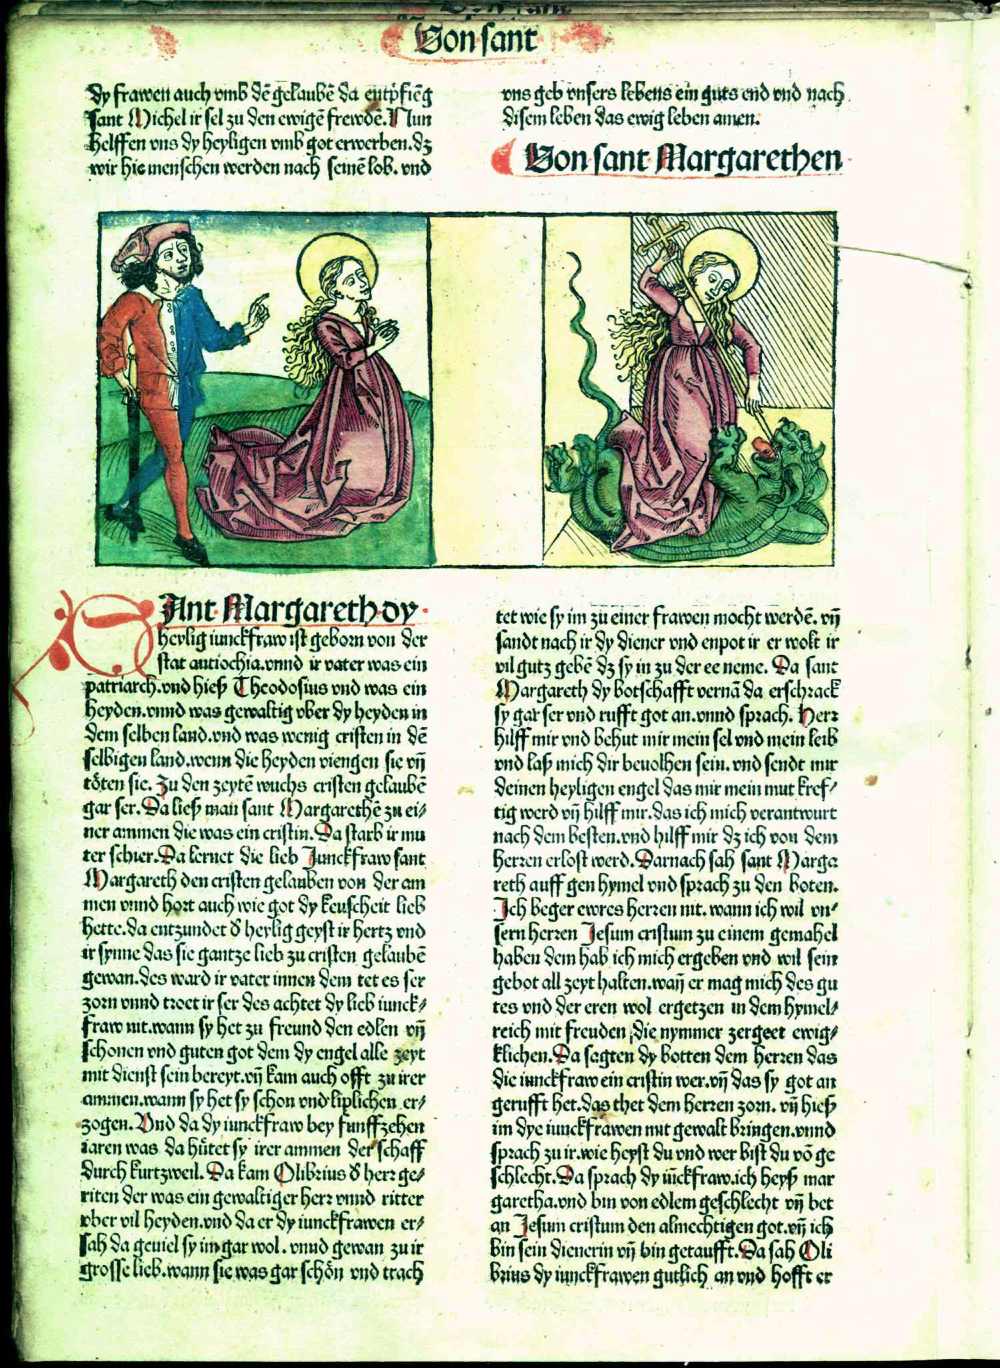 Von sant
dy frawen auch vmb dē gelaubē da entpfieg
sant Michel ir sel zu den ewigē frewdē. Nun
helffen vns dy heyligen vmb got erwerben. dz
wir hie menschen werden nach seinē lob. vnd
vns geb vnsers lebens ein guts end vnd nach
disem leben das ewig leben amen.
Von sant Margarethen
SAnt Margareth dy
heylig iunckfraw ist geborn von der
stat antiochia. vnnd ir vater was ein
patriarch. vnd hieß Theodosius vnd was ein
heyden. vnnd was gewaltig vber dy heyden in
dem selben land. vnd was wenig cristen in dē
selbigen land. wenn die heyden viengen sie vñ
töten sie. Zu den zeytē wuchs cristen gelaubē
gar ser. Da ließ man sant Margarethē zu ei-
ner ammen die was ein cristin. Da starb ir mu
ter schier. Da lernet die lieb Junckfraw sant
Margareth den cristen gelauben von der am
men vnnd hort auch wie got dy keuscheit lieb
hette. da entzundet d heylig geyst ir hertz vnd
ir synne das sie gantze lieb zu cristen gelaubē
gewan. des ward ir vater innen dem tet es ser
zorn vnnd troet ir ser des achtet dy lieb iunck-
fraw nit. wann sy het zu freund den edlen vñ
schonen vnd guten got dem dy engel alle zeyt
mit dienst sein bereyt. vñ kam auch offt zu irer
ammen. wann sy het sy schon vnd liplichen er-
zogen. Vnd da dy iunckfraw bey funffzehen
iaren was da hütet sy irer ammen der schaff
durch kurtzweil. Da kam Olibrius d herr ge-
riten der was ein gewaltiger herr vnnd ritter
vber vil heyden. vnd da er dy iunckfrawen er-
sah da geuiel sy im gar wol. vnnd gewan zu ir
grosse lieb. wann sie was gar schön vnd trach
tet wie sy im zu einer frawen mocht werdē. vñ
sandt nach ir dy diener vnd enpot ir er wolt ir
vil gutz gebē dz sy in zu der ee neme. Da sant
Margareth dy botschafft vernā da erschrack
sy gar ser vnd rufft got an. vnnd sprach. Herr
hilff mir vnd behut mir mein sel vnd mein leib
vnd laß mich dir beuolhen sein. vnd sendt mir
deinen heyligen engel das mir mein mut kref-
tig werd vñ hilff mir. das ich mich verantwurt
nach dem besten. vnd hilff mir dz ich von dem
herzen erlost werd. Darnach sah sant Marga
reth auff gen hymel vnd sprach zu den boten.
Ich beger ewres herren nit. wann ich wil vn-
sern herren Jesum cristum zu einem gemahel
haben dem hab ich mich ergeben vnd wil sein
gebot all zeyt halten. wañ er mag mich des gu
tes vnd der eren wol ergetzen in dem hymel-
reich mit freuden, die nymmer zergeet ewig-
klichen. Da sagten dy botten dem herzen das
die iunckfraw ein cristin wer. vñ das sy got an
gerufft het. das thet dem herren zorn. vñ hieß
im dye iunckfrawen mit gewalt bringen. vnnd
sprach zu ir. wie heyst du vnd wer bist du vō ge
schlecht. Da sprach dy iūckfraw. ich heyß mar
garetha. vnd bin von edlem geschlecht vñ bet
an Jesum cristum den almechtigen got. vñ ich
bin sein dienerin vñ bin getaufft. Da sah Oli
brius dy iunckfrawen gutlich an vnd hofft er